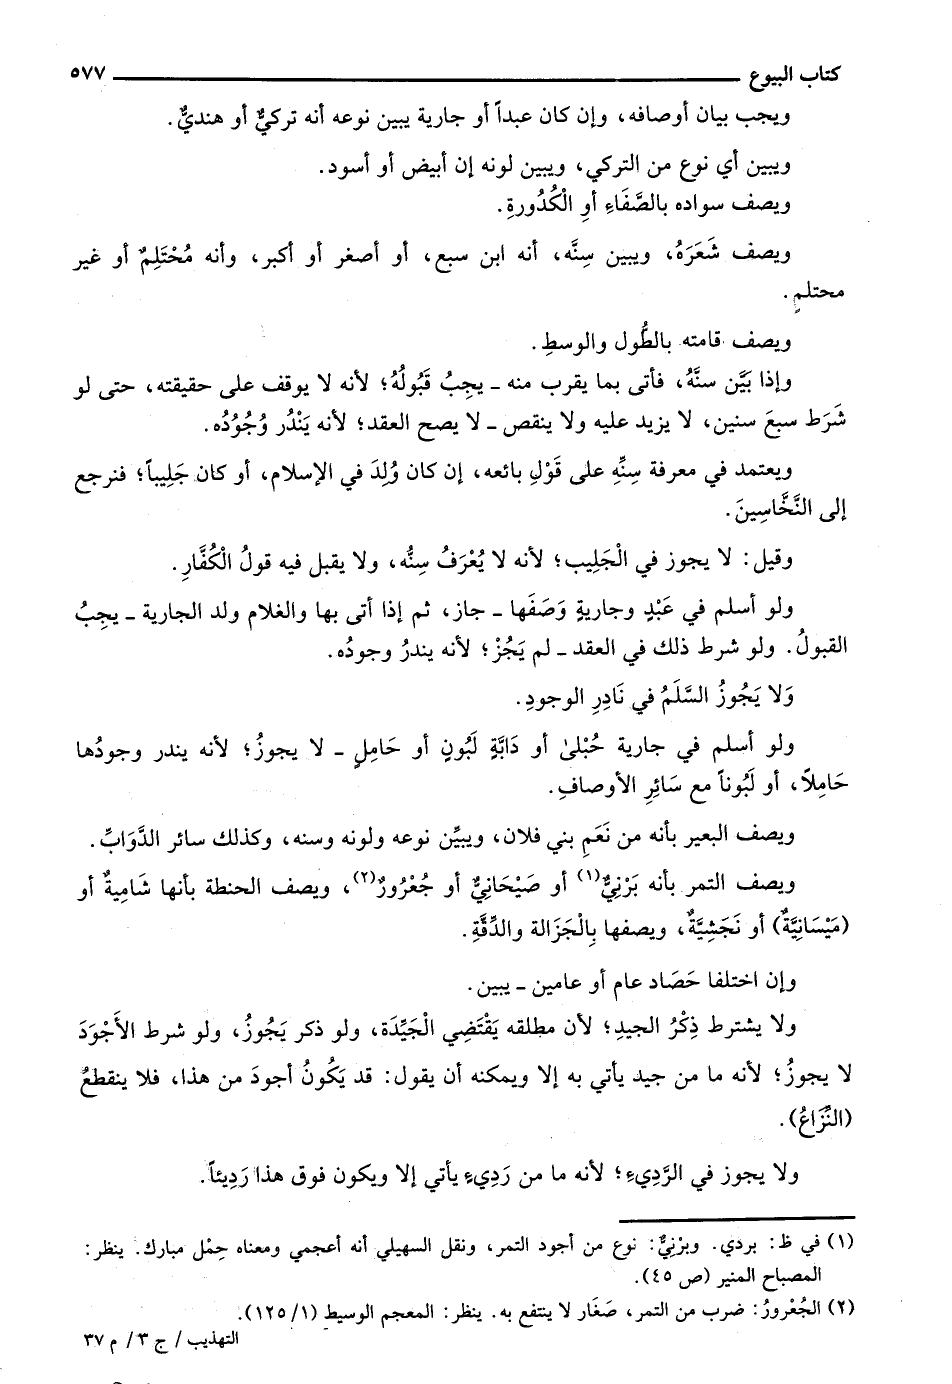 كتاب البيوع ٥٧٧
ويجب بيان أوصافه، وإن كان عبداً أو جارية يبين نوعه أنه تركيٌّ أو هنديٌّ.
ويبين أي نوع من التركي، ويبين لونه إن أبيض أو أسود.
ويصف سواده بالصَّفَاءِ أوِ الْكُدُورةِ.
ويصف شَعَرَهُ، ويبين سِنَّه، أنه ابن سبع، أو أصغر أو أكبر، وأنه مُحْتَلِمٌ أو غير
محتلمٍ.
ويصف قامته بالطُّول والوسطِ.
وإذا بَيَّن سنَّهُ، فأتى بما يقرب منه ـ يجِبُ قَبُولُهُ؛ لأنه لا يوقف على حقيقته، حتى لو
شَرَط سبعَ سنين، لا يزيد عليه ولا ينقص ـ لا يصح العقد؛ لأنه يَنْدُر وُجُوُدُه.
ويعتمد في معرفة سِنِّهِ على قَوْلِ بائعه، إن كان وُلِدَ في الإسلام، أو كان جَلِيباً؛ فنرجع
إلى النَّخَّاسِينَ.
وقيل: لا يجوز في الْجَلِيب؛ لأنه لا يُعْرَفُ سِنُّه، ولا يقبل فيه قولُ الْكُفَّارِ.
ولو أسلم في عَبْدٍ وجاريةٍ وَصَفَها ـ جاز، ثم إذا أتى بها والغلام ولد الجارية ـ يجِبُ
القبولُ. ولو شرط ذلك في العقد ـ لم يَجُزْ؛ لأنه يندرُ وجودُه.
وَلا يَجُوزُ السَّلَمُ في نَادِرِ الوجودِ.
ولو أسلم في جارية حُبْلىٰ أو دَابَّةٍ لَبُونٍ أو حَامِلٍ ـ لا يجوزُ؛ لأنه يندر وجودُها
حَامِلاً، أو لَبُوناً مع سَائِرِ الأوصافِ.
ويصف البعير بأنه من نَعَمِ بني فلان، ويبيِّن نوعه ولونه وسنه، وكذلك سائر الدَّوَابِّ.
ويصف التمر بأنه بَرْنِيٌّ(١) أو صَيْحَانِيٌّ أو جُعْرُورٌ(٢)، ويصف الحنطة بأنها شَامِيةٌ أو
(مَيْسَانِيَّةٌ) أو نَجَشِيَّةٌ، ويصفها بِالْجَزَالة والدِّقَّةِ.
وإن اختلفا حَصَاد عام أو عامين ـ يبين.
ولا يشترط ذِكْرُ الجيدِ؛ لأن مطلقه يَقْتَضِي الْجَيِّدَة، ولو ذكر يَجُوزُ، ولو شرط الأَجْوَدَ
لا يجوزُ؛ لأنه ما من جيد يأتي به إلا ويمكنه أن يقول: قد يَكُونُ أجودَ من هذا، فلا ينقطعُ
(النَّزَاعُ).
ولا يجوز في الرَّدِيءِ؛ لأنه ما من رَدِيءٍ يأتي إلا ويكون فوق هذا رَدِيئاً.
(١) في ظ: بردي. وبرْنِيٌّ: نوع من أجود التمر، ونقل السهيلي أنه أعجمي ومعناه حِمْل مبارك. ينظر:
المصباح المنير (ص ٤٥).
(٢) الجُعْرورُ: ضرب من التمر، صَغَار لا ينتفع به. ينظر: المعجم الوسيط (١/ ١٢٥).
التهذيب/ ج ٣/ م ٣٧